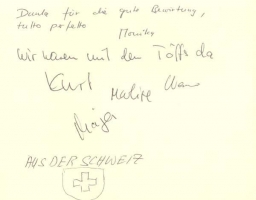 Danke für die gute Bewirtung,
tutto perfetto
Monika
Wir waren mit den Töffs da
Kurt
AUS DER SCHWEIZ